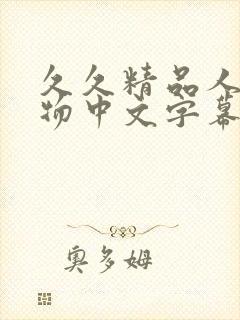 久久精品人
物中文字幕
奥多姆